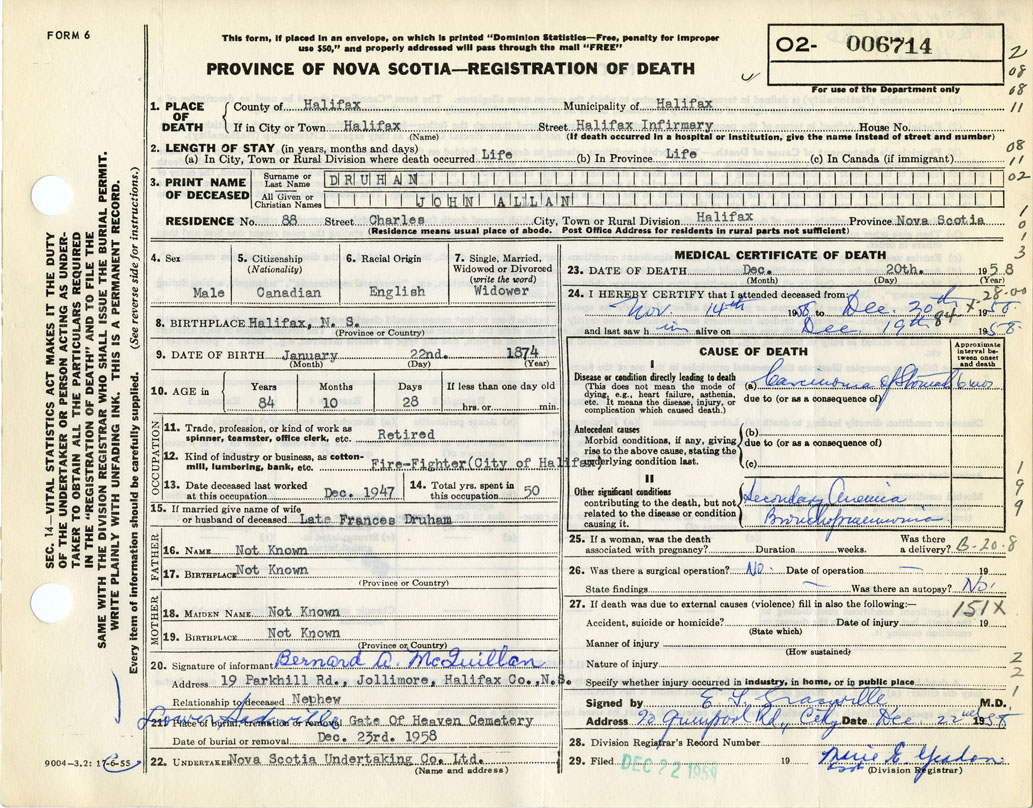 FORM 6
This form, if placed in an envelope, on which is printed "Dominion Statistics—Free, penalty for improper
use $50," and properly addressed will pass through the mail "FREE"
PROVINCE OF NOVA SCOTIA—REGISTRATION OF DEATH
02- 006714
For use of the Department only
1. PLACE OF DEATH
County of Halifax Municipality of Halifax
If in City or Town Halifax Street Halifax Infirmary House No.
(Name) (If death occurred in a hospital or institution, give the name instead of street and number)
2. LENGTH OF STAY (in years, months and days)
(a) In City, Town or Rural Division where death occurred Life (b) In Province Life (c) In Canada (if immigrant)
3. PRINT NAME OF DECEASED
Surname or Last Name DRUHAN
All Given or Christian Names JOHN ALLAN
RESIDENCE No. 88 Street Charles City, Town or Rural Division Halifax Province Nova Scotia
(Residence means usual place of abode. Post Office Address for residents in rural parts not sufficient)
2
08
68
11
08
11
02
1
0
3
3
1
9
9
2
2
1
SEC. 14—VITAL STATISTICS ACT MAKES IT THE DUTY
OF THE UNDERTAKER OR PERSON ACTING AS UNDER-
TAKER TO OBTAIN ALL THE PARTICULARS REQUIRED
IN THE "REGISTRATION OF DEATH" AND TO FILE THE
SAME WITH THE DIVISION REGISTRAR WHO SHALL ISSUE THE BURIAL PERMIT.
WRITE PLAINLY WITH UNFADING INK. THIS IS A PERMANENT RECORD.
Every item of information should be carefully supplied. (See reverse side for instructions.)
4. Sex
Male
5. Citizenship
(Nationality)
Canadian
6. Racial Origin
English
7. Single, Married,
Widowed or Divorced
(write the word)
Widower
8. BIRTHPLACE Halifax, N. S.
(Province or Country)
9. DATE OF BIRTH January 22nd. 1874
(Month) (Day) (Year)
10. AGE in
Years Months Days If less than one day old
84 10 28 hrs. or min.
OCCUPATION
11. Trade, profession, or kind of work as
spinner, teamster, office clerk, etc. Retired
12. Kind of industry or business, as cotton-
mill, lumbering, bank, etc. Fire-Fighter(City of Halifax)
13. Date deceased last worked
at this occupation Dec. 1947
14. Total yrs. spent in
this occupation 50
15. If married give name of wife
or husband of deceased Late Frances Druham
FATHER
16. NAME Not Known
17. BIRTHPLACE Not Known
(Province or Country)
MOTHER
18. MAIDEN NAME Not Known
19. BIRTHPLACE Not Known
(Province or Country)
20. Signature of informant Bernard A. McQuillan
Address 19 Parkhill Rd., Jollimore, Halifax Co., N.S.
Relationship to deceased Nephew
21. Place of burial, cremation or removal Gate Of Heaven Cemetery
Lower Sackville
Date of burial or removal Dec. 23rd. 1958
22. UNDERTAKER Nova Scotia Undertaking Co. Ltd.
(Name and address)
9004—3.2: 17-6-55
MEDICAL CERTIFICATE OF DEATH
23. DATE OF DEATH Dec. 20th. 1958
(Month) (Day) (Year)
24. I HEREBY CERTIFY that I attended deceased from
Nov. 14th 1958 to Dec. 20th 1958.
and last saw h im alive on Dec. 19th 1958
84 x -28-00
CAUSE OF DEATH
Approximate interval between onset and death
I
Disease or condition directly leading to death
(This does not mean the mode of
dying, e.g., heart failure, asthenia,
etc. It means the disease, injury, or
complication which caused death.)
(a) Carcinoma of Stomach 6 mos
due to (or as a consequence of)
Antecedent causes
Morbid conditions, if any, giving
rise to the above cause, stating the
underlying condition last.
(b)
due to (or as a consequence of)
(c)
II
Other significant conditions
contributing to the death, but not
related to the disease or condition
causing it.
Secondary Anemia
Bronchopneumonia
25. If a woman, was the death
associated with pregnancy? Duration weeks. Was there
a delivery? B-20-8
26. Was there a surgical operation? No. Date of operation — 19
State findings — Was there an autopsy? No.
27. If death was due to external causes (violence) fill in also the following:—
151X
Accident, suicide or homicide? Date of injury 19
(State which)
Manner of injury
(How sustained)
Nature of injury
Specify whether injury occurred in industry, in home, or in public place
Signed by E. F. Granville M.D.
Address Rd., City Date Dec. 22nd 1958
28. Division Registrar's Record Number
29. Filed DEC 22 1958 19
(Division Registrar)